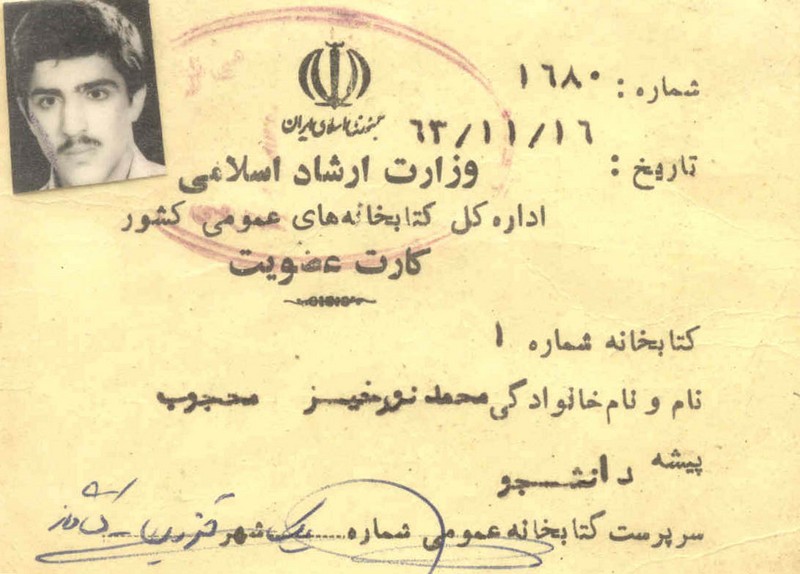 شماره : ۱۶۸۰
جمهوری اسلامی ایران
تاریخ : ۶۳/۱۱/۱۶
وزارت ارشاد اسلامی
اداره کل کتابخانه‌های عمومی کشور
کارت عضویت
کتابخانه شماره ۱
نام و نام خانوادگی محمد نورخیز محجوب
پیشه دانشجو
سرپرست کتابخانه عمومی شماره یک شهر قزوین